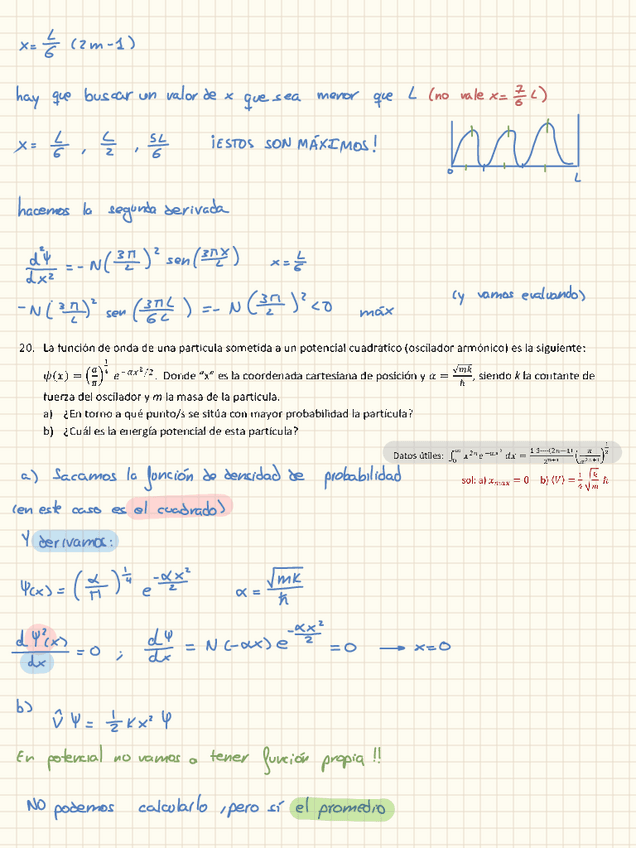 x = L/6 (2m-1)
hay que buscar un valor de x que sea menor que L (no vale x = 7/6 L)
x = L/6 , L/2 , 5L/6 ¡ESTOS SON MÁXIMOS!
0 L
hacemos la segunda derivada
d²Ψ/dx² = -N(3π/L)² sen(3πx/L) x = L/6
-N(3π/L)² sen(3πL/6L) = -N(3π/L)² < 0 máx (y vamos evaluando)
20. La función de onda de una partícula sometida a un potencial cuadrático (oscilador armónico) es la siguiente:
ψ(x) = (α/π)^(1/4) e^(-αx²/2). Donde "x" es la coordenada cartesiana de posición y α = √(mk)/ħ, siendo k la contante de
fuerza del oscilador y m la masa de la partícula.
a) ¿En torno a qué punto/s se sitúa con mayor probabilidad la partícula?
b) ¿Cuál es la energía potencial de esta partícula?
Datos útiles: ∫₀^∞ x^(2n) e^(-αx²) dx = 1·3···(2n-1)/2^(n+1) (π/α^(2n+1))^(1/2)
sol: a) x_max = 0 b) ⟨V⟩ = 1/4 √k/√m ħ
a) Sacamos la función de densidad de probabilidad
(en este caso es el cuadrado)
Y derivamos:
Ψ(x) = (α/π)^(1/4) e^(-αx²/2) α = √(mk)/ħ
dΨ²(x)/dx = 0 ; dΨ/dx = N(-αx) e^(-αx²/2) = 0 → x=0
b) V̂Ψ = 1/2 Kx² Ψ
En potencial no vamos a tener función propia!!
NO podemos calcularlo, pero sí el promedio